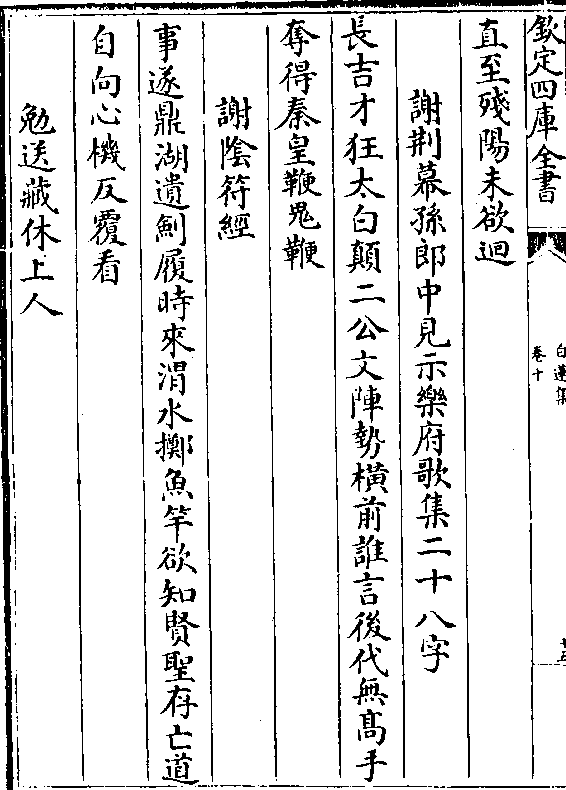 欽定四庫全書
白蓮集
卷十
直至殘陽未欲迴
謝荆幕孫郎中見示樂府歌集二十八字
長吉才狂太白顛二公文陣勢橫前誰言後代無髙手
奪得秦皇鞭鬼鞭
謝陰符經
事遂鼎湖遺劍履時來渭水擲魚竿欲知賢聖存亡道
自向心機反覆看
勉送藏休上人